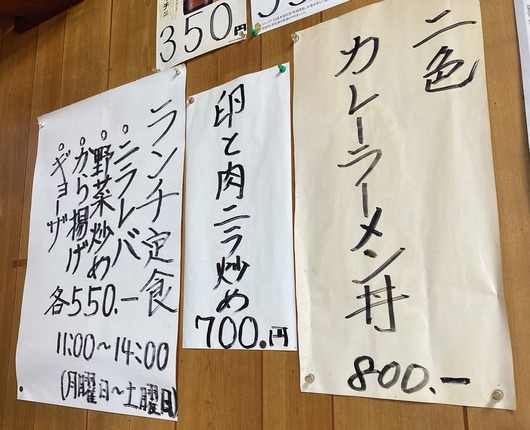 350円
二色
カレーラーメン丼
800.-
卵と肉ニラ炒め
700.円
ランチ定食
・ニラレバ
・野菜炒め
・から揚げ
・ギョーザ
各550.-
11:00～14:00
(月曜日～土曜日)